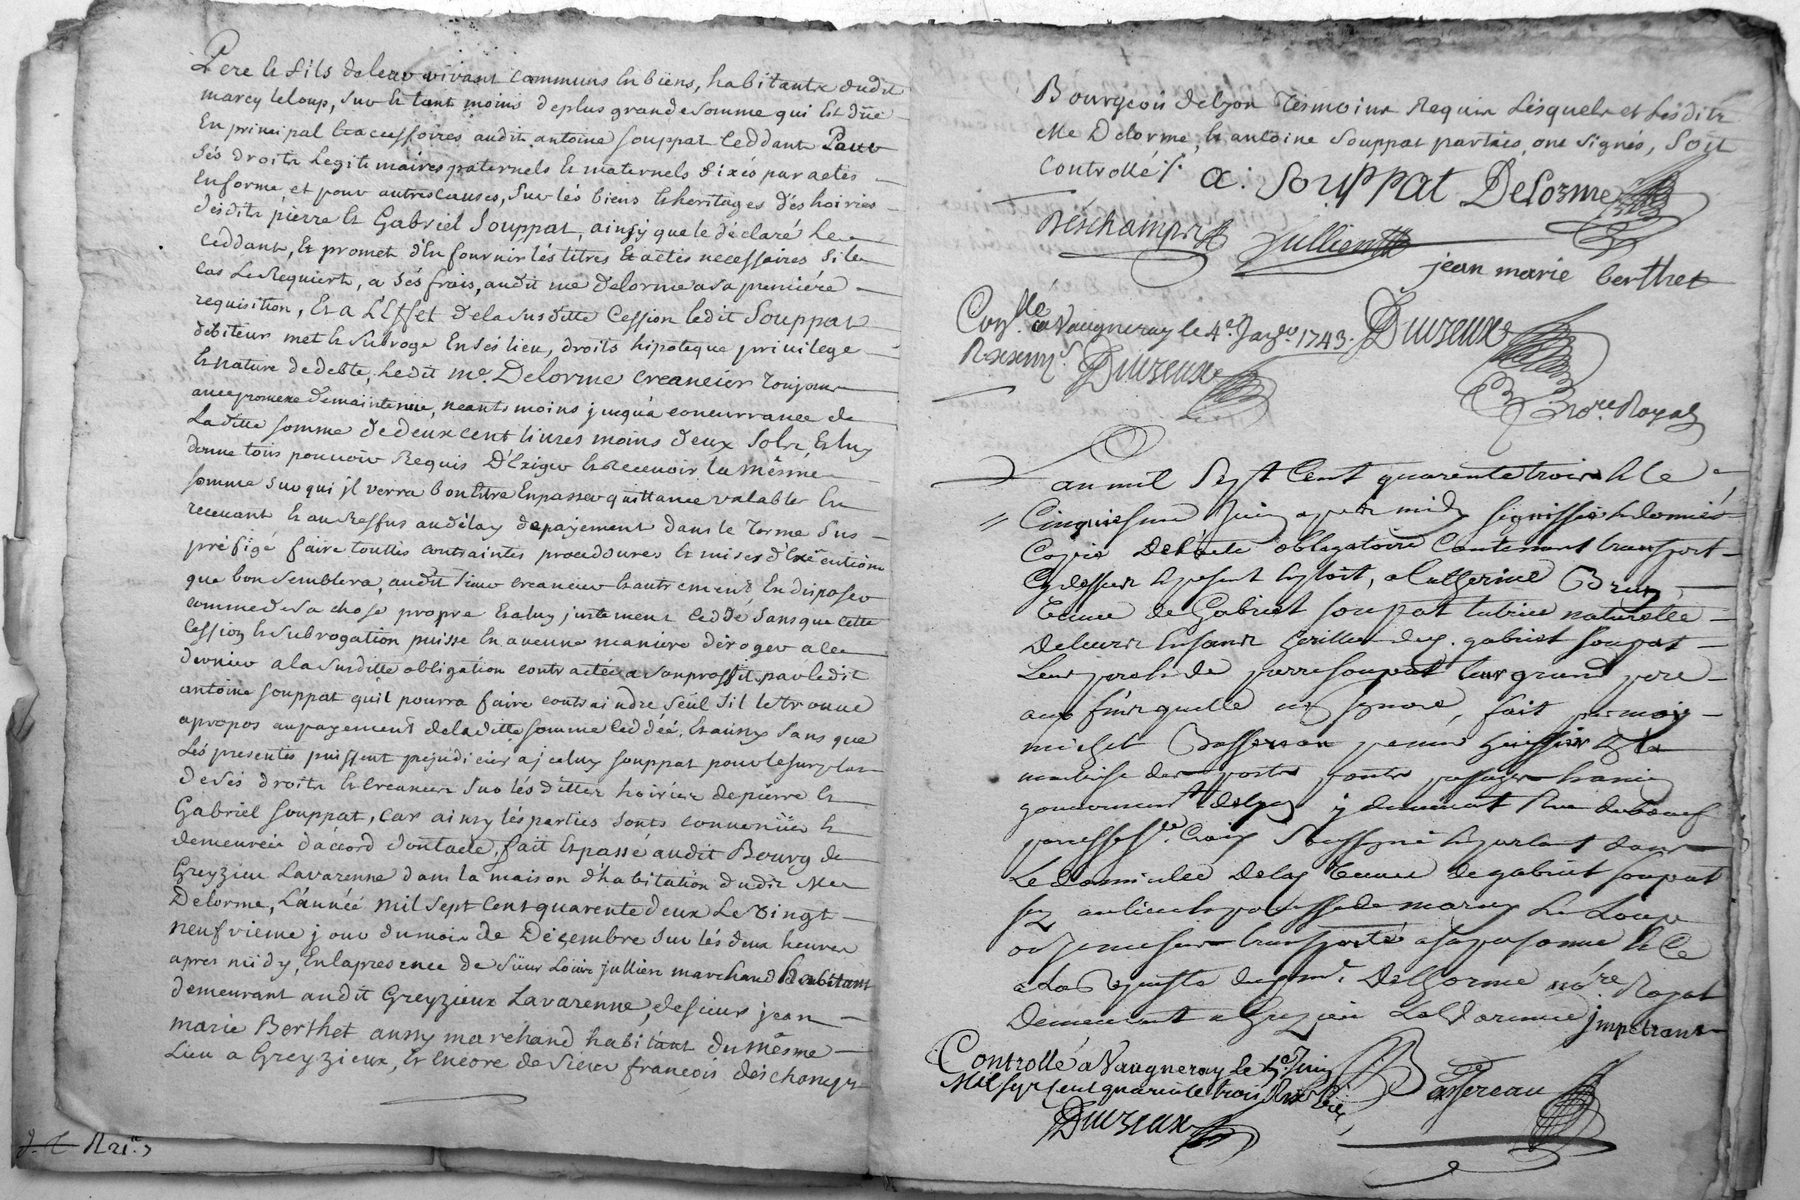 Pere le fils de leur vivant communs en biens, habitants dudit
marcy le loup, sur et tant moins de plus grande somme qui est düe
En principal et accessoires audit antoine souppat Ceddant Pour
sés droits legitimaires paternels et maternels fixés par actes
En forme et pour autres causes, sur lés biens et heritages dés hoiries
désdits pierre et Gabriel Souppat, ainsy que le déclaré le
ceddant, Et promet d'En fournir lés titres Et actes necessaires si le
cas Le Requiert, a sés frais, audit me delorme a sa premiére
requisition, Et a L'Effet de la susditte Cession ledit Souppat
débiteur met et subroge En sés lieu, droits hipoteque privilege
et nature de debte, Ledit me. Delorme creancier toujours
avec promesse de maintenüe, neantsmoins jusqu'a concurrance de
La ditte somme de deux cent livres moins deux sols, Et luy
donne tous pouvoir Requis D'Exiger et Recevoir la mêsme
somme sur qui jl verra bon Estre En passer quittance valable En
recevant et au Reffus au délay de payement dans le terme sus
préfigé faire touttes contraintes procedoures et mises d'Exécutions
que bon semblera, audit sieur creancier et autrement En disposer
comme de sa chose propre Et a luy justement ceddé sans que cette
Cession et subrogation puisse En aucune maniere déroger a ce
dernier a la susditte obligation contractée a son proffit par ledit
antoine souppat qu'il pourra faire contraindre seul sil le trouve
apropos au payement de la ditte somme ceddée, Et aussy sans que
Lés presentes puissent prejudicier a jceluy souppat pour le surplus
de sés droits et creances sur lés dittes hoiries de pierre et
Gabriel souppat, car ainsy lés parties sont convenües et
demeurées d'accord dont acte, fait Et passé audit Bourg de
Greyzieu Lavarenne dans la maison d'habitation dudit Me
Delorme, L'année mil sept cent quarente deux Le Vingt
neufvieme jour du mois de Décembre sur lés deux heures
apres midy, En la presence de Sieur Loüis jullien marchand habitant
demeurant audit Greyzieux Lavarenne, de sieur jean
marie Berthet aussy marchand habitant du mêsme
Lieu a Greyzieux, Et Encore de Sieur françois déschamps
Bourgeois de lyon tésmoins Requis Lésquels et lésdits
Me Delorme, Et antoine Souppat parties, ont signés, soit
controllé
a. Souppat Delorme
Deschamps Jullien
jean marie berthet
Con.lle a Vaugneray le 4e Janv. 1743. Duvzeux
Duvzeux
nore. Royal
an mil Sept Cent quarente trois et le
Cinquiesme Juin apres midy signiffié et donnés
Copie de l'acte obligatoire Contenant transport
Cy dessus et present Exploit, a Catherine Brun
veuve de Gabriel soupat tutrice naturelle
de leurs Enfans heritiers dud. gabriel soupat
Leur pere et de pierre soupat leur grand pere
aux fins quelle n'en jgnore, fait par moy
michel Bassereau
demeurant rue du boeuf
paroisse Ste. Croix soussigné Et parlant dans
Le domicille de lad veuve de gabriel soupat
sis au lieu et paroisse de marcy Le Loup
ou je me suis transporté a sa personne et ce
a la Requeste dud me. Delhorme nore Royal
Demeurant a Grezieu La Varenne jmpetrant
Controllé a Vaugneray Le 5e Juin
Mil sept cent quarente trois
Bassereau
Duvzeux